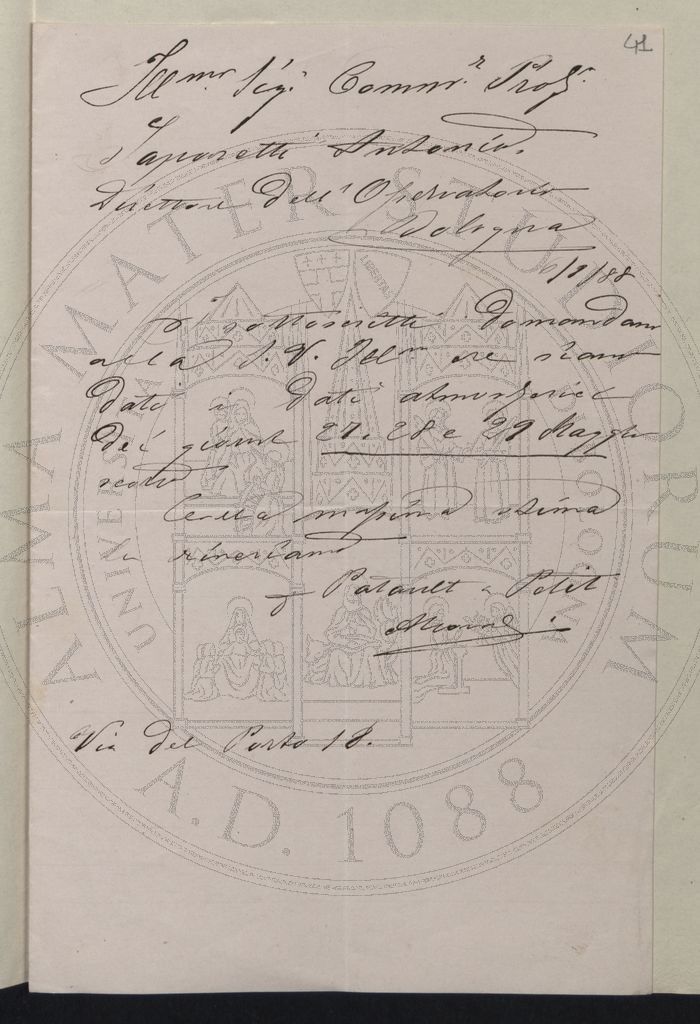 41
Illmo Sigr Commr Profr
Saporetti Antonio
Direttore dell'Osservatorio
Bologna
6/9/88
I sottoscritti domandano
alla S. V. Illma se siano
dati i dati atmosferici
dei giorni 27. 28 e 29 Maggio
scorso
Colla massima stima
riveriamo
Patault e Petit
Via del Porto 18.
ALMA MATER STUDIORUM
A.D. 1088
LIBERTAS